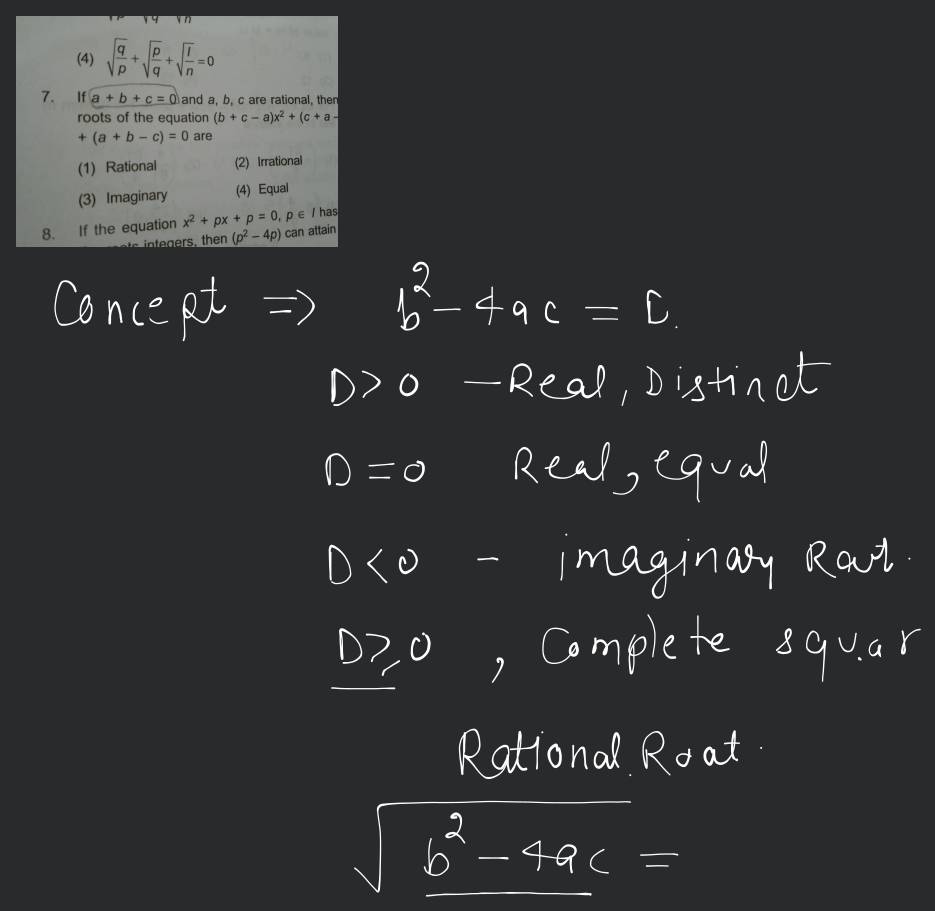 (4) √q/p + √p/q + √l/n = 0
7. If a + b + c = 0 and a, b, c are rational, then
roots of the equation (b + c – a)x² + (c + a –
+ (a + b – c) = 0 are
(1) Rational (2) Irrational
(3) Imaginary (4) Equal
8. If the equation x² + px + p = 0, p ∈ I has
integers, then (p² – 4p) can attain
Concept => b² – 4ac = D.
D > 0 – Real, Distinct
D = 0 Real, equal
D < 0 - imaginary Root.
D ≥ 0 , Complete squar
Rational Root.
√b² – 4ac =